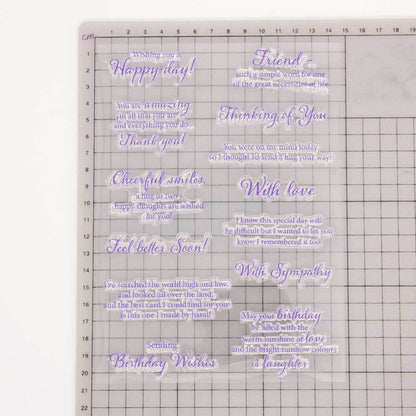 cm 1 2 3 4 5 6 7 8 9 10 11 12 13 14 15 16 17 18
1
2
3
4
5
6
7
8
9
10
11
12
13
14
15
16
17
18
19
20
21
22
Wishing you a
Happy day!
You are amazing
in all that you are
and everything you do.
Thank you!
Cheerful smiles,
a hug or two -
happy thoughts are wished
for you!
Feel better Soon!
I've searched the world high and low,
and looked all over the land,
and the best card I could find for you
is this one I made by hand!
Sending
Birthday Wishes
Friend...
such a simple word for one
of the great necessities of life.
Thinking of You
You were on my mind today
so I thought I'd send a hug your way!
With love
I know this special day will
be difficult but I wanted to let you
know I remembered it too.
With Sympathy
May your birthday
be filled with the
warm sunshine of love
and the bright rainbow colours
of laughter